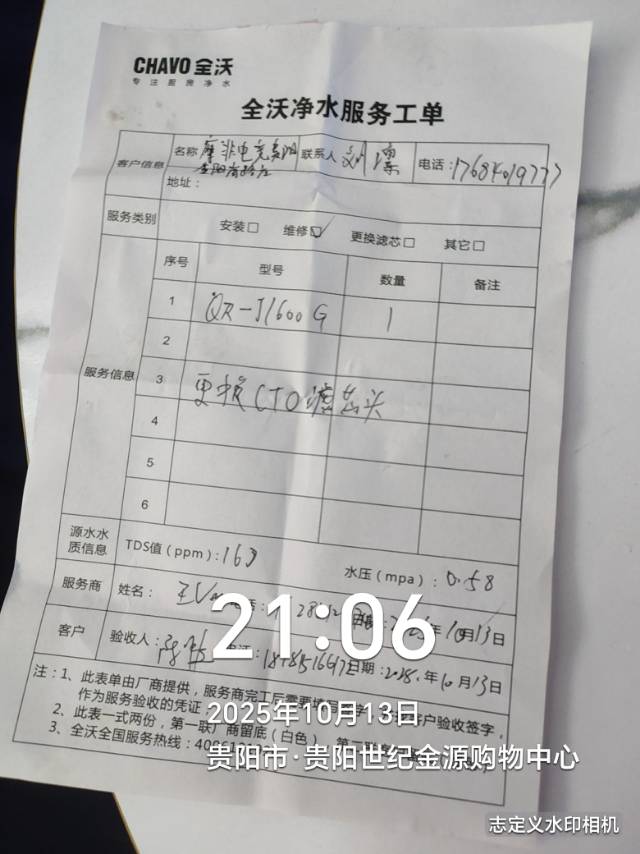 CHAVO 全沃
专注厨房净水
全沃净水服务工单
客户信息
名称 摩非电竞贵阳
联系人
电话:17684019777
地址:
服务类别
安装□ 维修☑ 更换滤芯□ 其它□
服务信息
序号 型号 数量 备注
1 QR-J1600G 1
2
3 更换CTO滤芯头
4
5
6
源水水质信息
TDS值(ppm):163
水压(mpa):0.58
服务商 姓名: 王 年10月13日
客户 验收人: 日期: 年10月13日
注:1、此表单由厂商提供,服务商完工后需要 客户验收签字,
作为服务验收的凭证
2、此表一式两份,第一联厂商留底(白色)
3、全沃全国服务热线:400
21:06
2025年10月13日
贵阳市·贵阳世纪金源购物中心
志定义水印相机